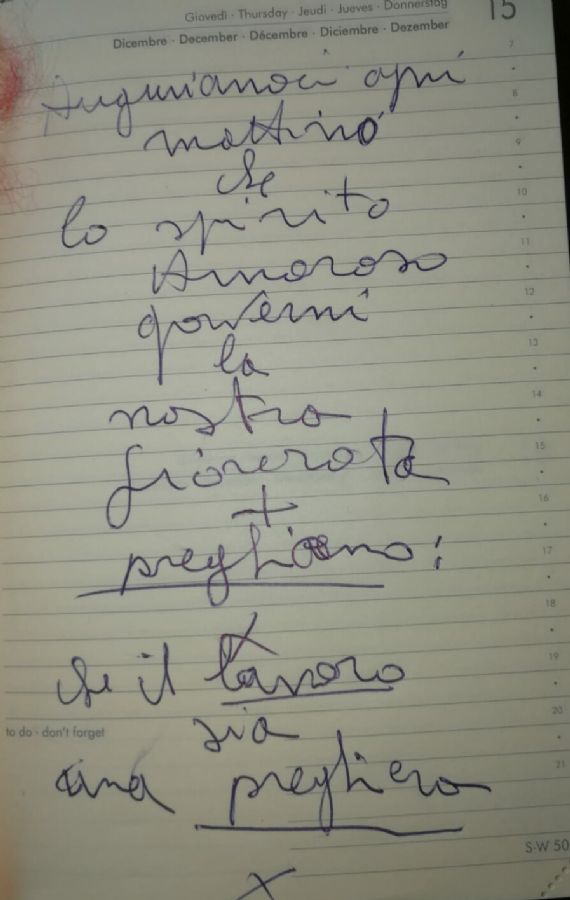 Giovedì · Thursday · Jeudi · Jueves · Donnerstag 15
Dicembre · December · Décembre · Diciembre · Dezember
7
Auguriamoci ogni
8
mattino
9
che
10
lo spirito
11
Amoroso
12
governi
13
la
14
nostra
15
giornata
16
+
17
preghiamo:
18
19
che il lavoro
20
sia
to do · don't forget
21
una preghiera
S-W 50
x